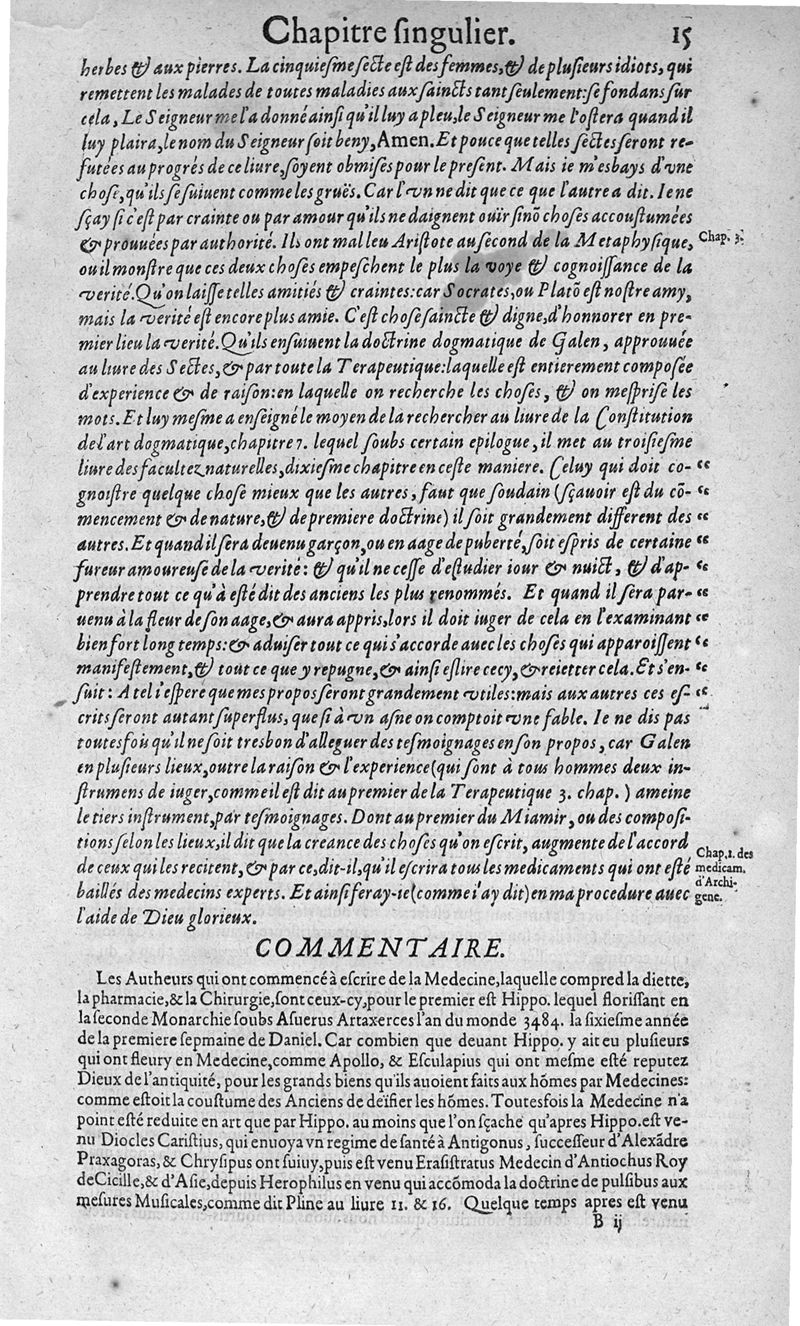 Chapitre ſingulier. 15
herbes & aux pierres. La cinquieſme ſecte eſt des femmes, & de pluſieurs idiots, qui
remettent les malades de toutes maladies aux ſaincts tant ſeulement: ſe fondans ſur
cela, Le Seigneur me l'a donné ainſi qu'il luy a pleu, le Seigneur me l'oſtera quand il
luy plaira, le nom du Seigneur ſoit beny, Amen. Et pource que telles ſectes ſeront re-
futées au progrés de ce liure, ſoyent obmiſes pour le preſent. Mais ie m'esbays d'vne
choſe, qu'ils ſe ſuiuent comme les gruës. Car l'vn ne dit que ce que l'autre a dit. Ie ne
ſçay ſi c'eſt par crainte ou par amour qu'ils ne daignent ouïr ſinõ choſes accouſtumées
& prouuées par authorité. Ils ont mal leu Ariſtote au ſecond de la Metaphyſique, Chap. 3.
ou il monſtre que ces deux choſes empeſchent le plus la voye & cognoiſſance de la
verité. Qu'on laiſſe telles amitiés & craintes: car Socrates, ou Platõ eſt noſtre amy,
mais la verité eſt encore plus amie. C'eſt choſe ſaincte & digne, d'honnorer en pre-
mier lieu la verité. Qu'ils enſuiuent la doctrine dogmatique de Galen, approuuée
au liure des Sectes, & par toute la Terapeutique: laquelle eſt entierement compoſée
d'experience & de raiſon: en laquelle on recherche les choſes, & on meſpriſe les
mots. Et luy meſme a enſeigné le moyen de la rechercher au liure de la Conſtitution
de l'art dogmatique, chapitre 7. lequel ſoubs certain epilogue, il met au troiſieſme
liure des facultez naturelles, dixieſme chapitre en ceſte maniere. Celuy qui doit co- “
gnoiſtre quelque choſe mieux que les autres, faut que ſoudain (ſçauoir eſt du cõ- “
mencement & de nature, & de premiere doctrine) il ſoit grandement different des “
autres. Et quand il ſera deuenu garçon, ou en aage de puberté, ſoit eſpris de certaine “
fureur amoureuſe de la verité: & qu'il ne ceſſe d'eſtudier iour & nuict, & d'ap- “
prendre tout ce qu'à eſté dit des anciens les plus renommés. Et quand il ſera par- “
uenu à la fleur de ſon aage, & aura appris, lors il doit iuger de cela en l'examinant “
bien fort long temps: & aduiſer tout ce qui s'accorde auec les choſes qui apparoiſſent “
manifeſtement, & tout ce que y repugne, & ainſi eſlire cecy, & reietter cela. Et s'en- “
ſuit: A tel i'eſpere que mes propos ſeront grandement vtiles: mais aux autres ces eſ- “
crits ſeront autant ſuperflus, que ſi à vn aſne on comptoit vne fable. Ie ne dis pas
toutesfois qu'il ne ſoit tresbon d'alleguer des teſmoignages en ſon propos, car Galen
en pluſieurs lieux, outre la raiſon & l'experience (qui ſont à tous hommes deux in-
ſtrumens de iuger, comme il eſt dit au premier de la Terapeutique 3. chap.) ameine
le tiers inſtrument, par teſmoignages. Dont au premier du Miamir, ou des compoſi-
tions ſelon les lieux, il dit que la creance des choſes qu'on eſcrit, augmente de l'accord
de ceux qui les recitent, & par ce, dit-il, qu'il eſcrira tous les medicaments qui ont eſté
baillés des medecins experts. Et ainſi feray-ie (comme i'ay dit) en ma procedure auec
l'aide de Dieu glorieux.
Chap. 1. des
medicam.
d'Archi-
gene.
COMMENTAIRE.
Les Autheurs qui ont commencé à eſcrire de la Medecine, laquelle compred la diette,
la pharmacie, & la Chirurgie, ſont ceux-cy, pour le premier eſt Hippo. lequel floriſſant en
la ſeconde Monarchie ſoubs Aſuerus Artaxerces l'an du monde 3484. la ſixieſme année
de la premiere ſepmaine de Daniel. Car combien que deuant Hippo. y ait eu pluſieurs
qui ont fleury en Medecine, comme Apollo, & Eſculapius qui ont meſme eſté reputez
Dieux de l'antiquité, pour les grands biens qu'ils auoient faits aux hõmes par Medecines:
comme eſtoit la couſtume des Anciens de deïfier les hõmes. Toutesfois la Medecine n'a
point eſté reduite en art que par Hippo. au moins que l'on ſçache qu'apres Hippo. eſt ve-
nu Diocles Cariſtius, qui enuoya vn regime de ſanté à Antigonus, ſucceſſeur d'Alexãdre
Praxagoras, & Chryſipus ont ſuiuy, puis eſt venu Eraſiſtratus Medecin d'Antiochus Roy
de Cicille, & d'Aſie, depuis Herophilus en venu qui accõmoda la doctrine de pulſibus aux
meſures Muſicales, comme dit Pline au liure 11. & 16. Quelque temps apres eſt venu
B ij